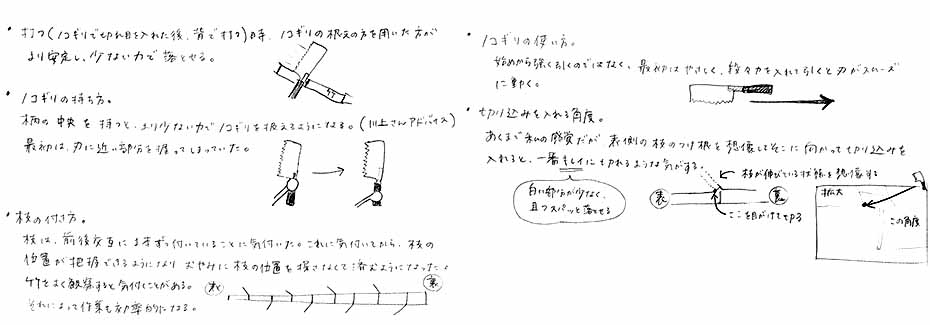 ・打つ(ノコギリで切れ目を入れた後、背で打つ)時、ノコギリの根元の方を用いた方が
より安定し、少ない力で落とせる。
竹
・ノコギリの持ち方。
柄の中央を持つと、より少ない力でノコギリを扱えるようになる。(川上さんアドバイス)
最初は、刃に近い部分を握ってしまっていた。
・枝の付き方。
枝は、前後交互に1本ずつ付いていることに気付いた。これに気付いてから、枝の
位置が把握できるようになり むやみに枝の位置を探さなくて済むようになった。
竹をよく観察すると気付くことがある。
それによって作業も効率的になる。
表
裏
・ノコギリの使い方。
始めから強く引くのではなく、最初はやさしく、段々力を入れて引くと刃がスムーズ
に動く。
・切り込みを入れる角度。
あくまで私の感覚だが 表側の枝のつけ根を想像してそこに向かって切り込みを
入れると、一番キレイに切れるような気がする。
枝が伸びている状態を想像する
白い部分が少なく、
且つスパッと落とせる
表
裏
ここを目がけて切る
拡大
この角度